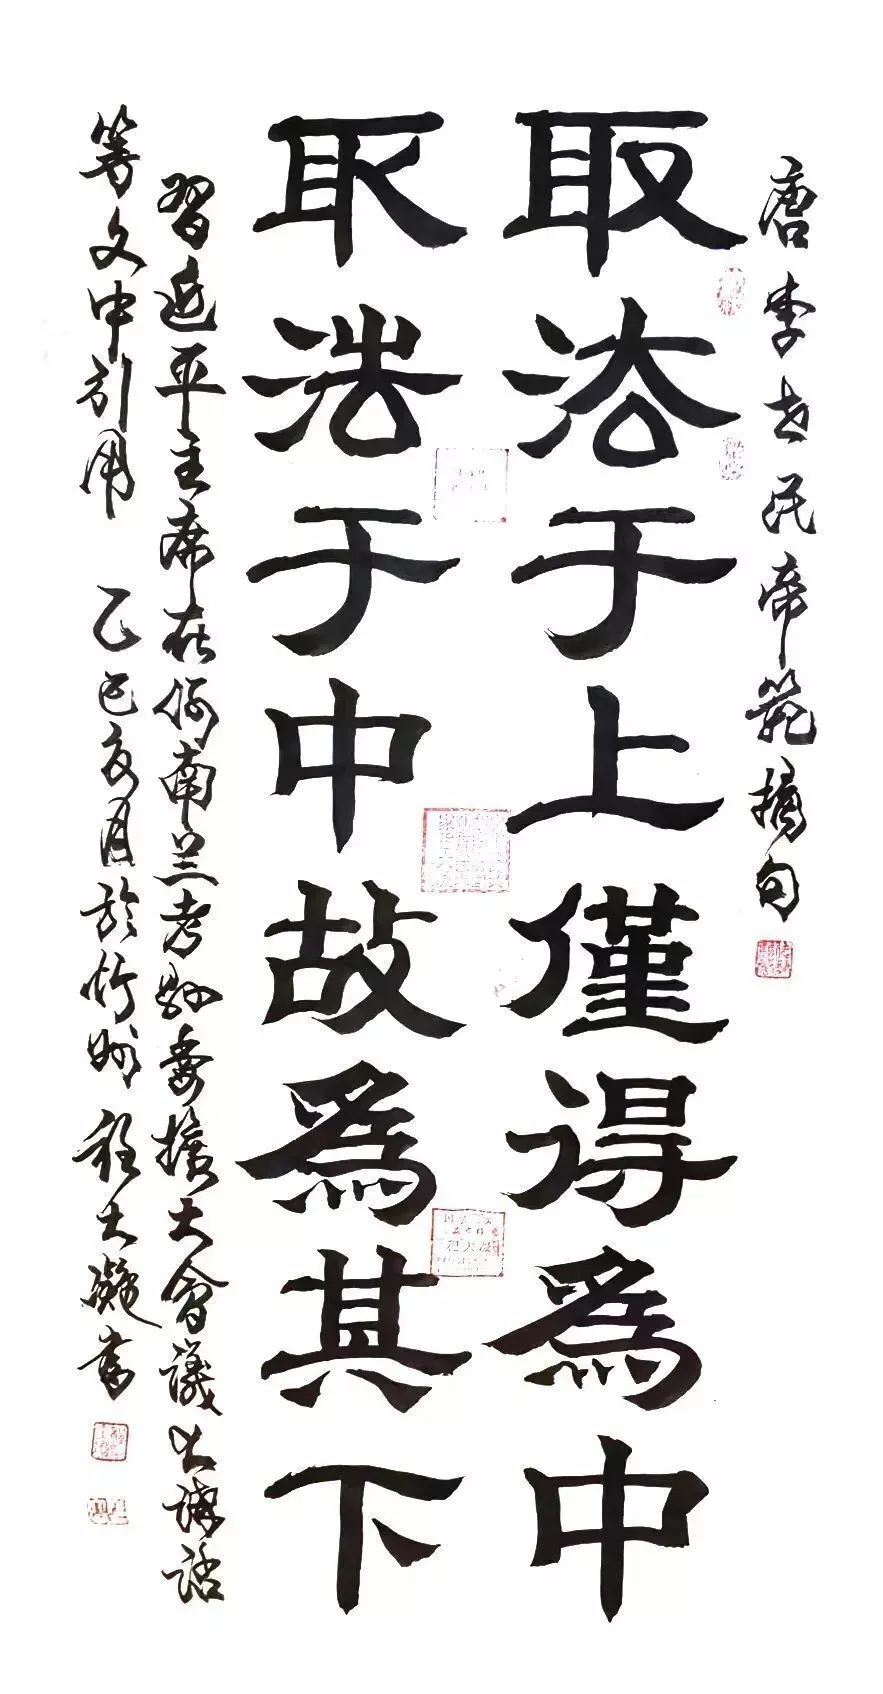 唐李世民帝範摘句
取法于上僅得爲中
取法于中故爲其下
習近平主席在河南兰考縣委擴大會議上講話
等文中引用 乙巳夜月於忻州 程大凝书